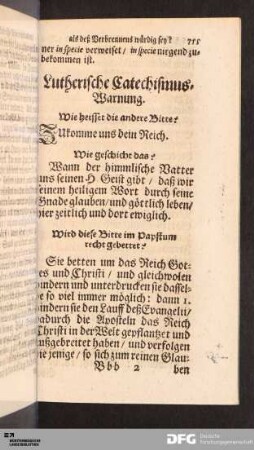 als deß Verbrennens würdig sey? 755
ner in specie verweiset / in specie nirgend zu-
bekommen ist.
Lutherische Catechismus-
Warnung.
Wie heisset die andere Bitte?
Zukomme uns dein Reich.
Wie geschicht das?
Wann der himmlische Vatter
uns seinen H Geist gibt / daß wir
seinem heiligem Wort durch seine
Gnade glauben / und göttlich leben /
hier zeitlich und dort ewiglich.
Wird diese Bitte im Papstum
recht gebettet?
Sie betten um das Reich Got-
tes und Christi / und gleichwolen
hindern und unterdrucken sie dassel-
be so viel immer möglich: dann 1.
hindern sie den Lauff deß Evangelii /
dadurch die Aposteln das Reich
Christi in der Welt gepflantzet und
außgebreitet haben / und verfolgen
die jenige / so sich zum reinen Glau-
Bbb 2 ben
DFG Deutsche
Forschungsgemeinschaft